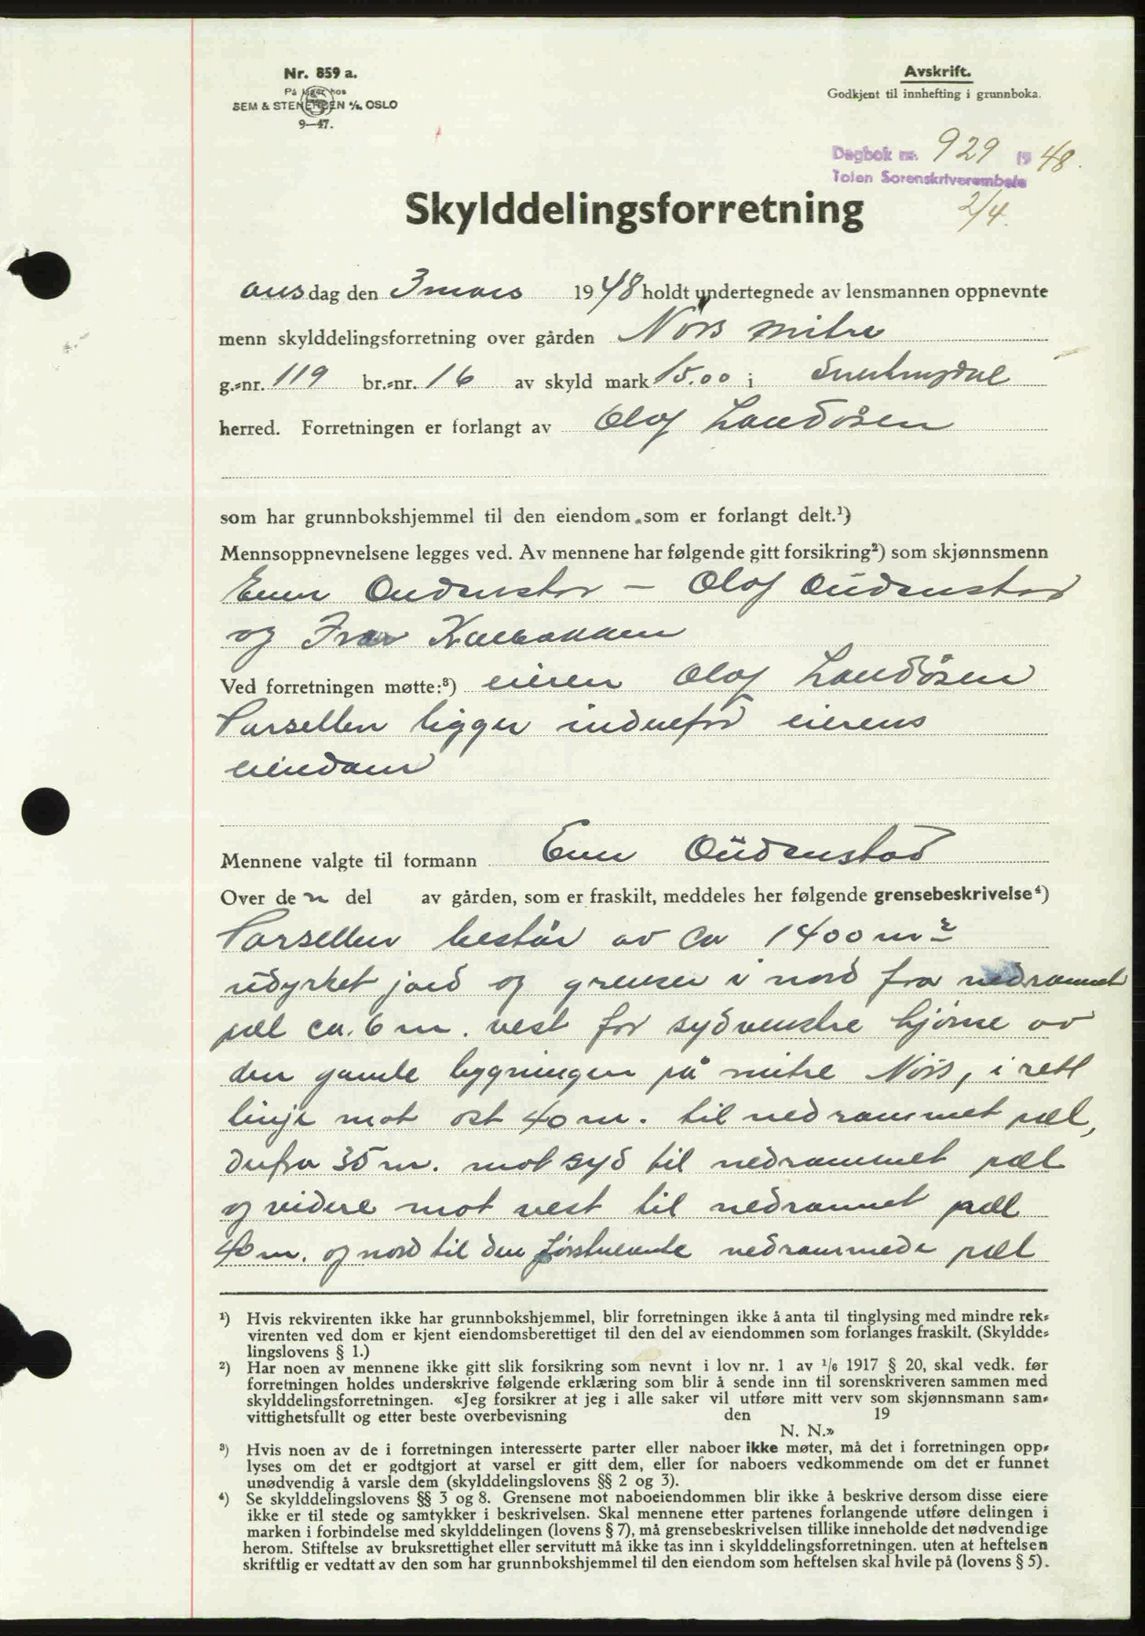 Nr. 859 a.
På lager hos
SEM & STENERSEN A/S. OSLO
9—47.
Avskrift.
Godkjent til innhefting i grunnboka.
Dagbok nr. 929 1948.
Toten Sorenskriverembete
2/4.
Skylddelingsforretning
onsdag den 3 mars 1948 holdt undertegnede av lensmannen oppnevnte
menn skylddelingsforretning over gården Nørs mitre
g.-nr. 119 br.-nr. 16 av skyld mark 15.00 i Snertingdal
herred. Forretningen er forlangt av Olaf Landåsen
som har grunnbokshjemmel til den eiendom som er forlangt delt.¹)
Mennsoppnevnelsene legges ved. Av mennene har følgende gitt forsikring²) som skjønnsmenn
Even Audenstad — Olaf Audenstad
og Kalbakken
Ved forretningen møtte:³) eieren Olaf Landåsen
Parsellen ligger indenfor eierens
eiendom
Mennene valgte til formann Even Audenstad
Over den del av gården, som er fraskilt, meddeles her følgende grensebeskrivelse⁴)
Parsellen består av ca 1400 m²
udyrket jord og grenser i nord fra nedrammet
pæl ca. 6 m. vest for sydvenstre hjørne av
den gamle bygningen på mitre Nørs, i rett
linje mot øst 40 m. til nedrammet pæl,
derfra 35 m. mot syd til nedrammet pæl
og videre mot vest til nedrammet pæl
40 m. og nord til den førstnevnte nedrammede pæl
¹) Hvis rekvirenten ikke har grunnbokshjemmel, blir forretningen ikke å anta til tinglysing med mindre rek-
virenten ved dom er kjent eiendomsberettiget til den del av eiendommen som forlanges fraskilt. (Skyldde-
lingslovens § 1.)
²) Har noen av mennene ikke gitt slik forsikring som nevnt i lov nr. 1 av 1/6 1917 § 20, skal vedk. før
forretningen holdes underskrive følgende erklæring som blir å sende inn til sorenskriveren sammen med
skylddelingsforretningen. «Jeg forsikrer at jeg i alle saker vil utføre mitt verv som skjønnsmann sam-
vittighetsfullt og etter beste overbevisning den 19
N. N.»
³) Hvis noen av de i forretningen interesserte parter eller naboer ikke møter, må det i forretningen opp-
lyses om det er godtgjort at varsel er gitt dem, eller for naboers vedkommende om det er funnet
unødvendig å varsle dem (skylddelingslovens §§ 2 og 3).
⁴) Se skylddelingslovens §§ 3 og 8. Grensene mot naboeiendommen blir ikke å beskrive dersom disse eiere
ikke er til stede og samtykker i beskrivelsen. Skal mennene etter partenes forlangende utføre delingen i
marken i forbindelse med skylddelingen (lovens § 7), må grensebeskrivelsen tillike inneholde det nødvendige
herom. Stiftelse av bruksrettighet eller servitutt må ikke tas inn i skylddelingsforretningen. uten at heftelsen
skriftlig er vedtatt av den som har grunnbokshjemmel til den eiendom som heftelsen skal hvile på (lovens § 5).